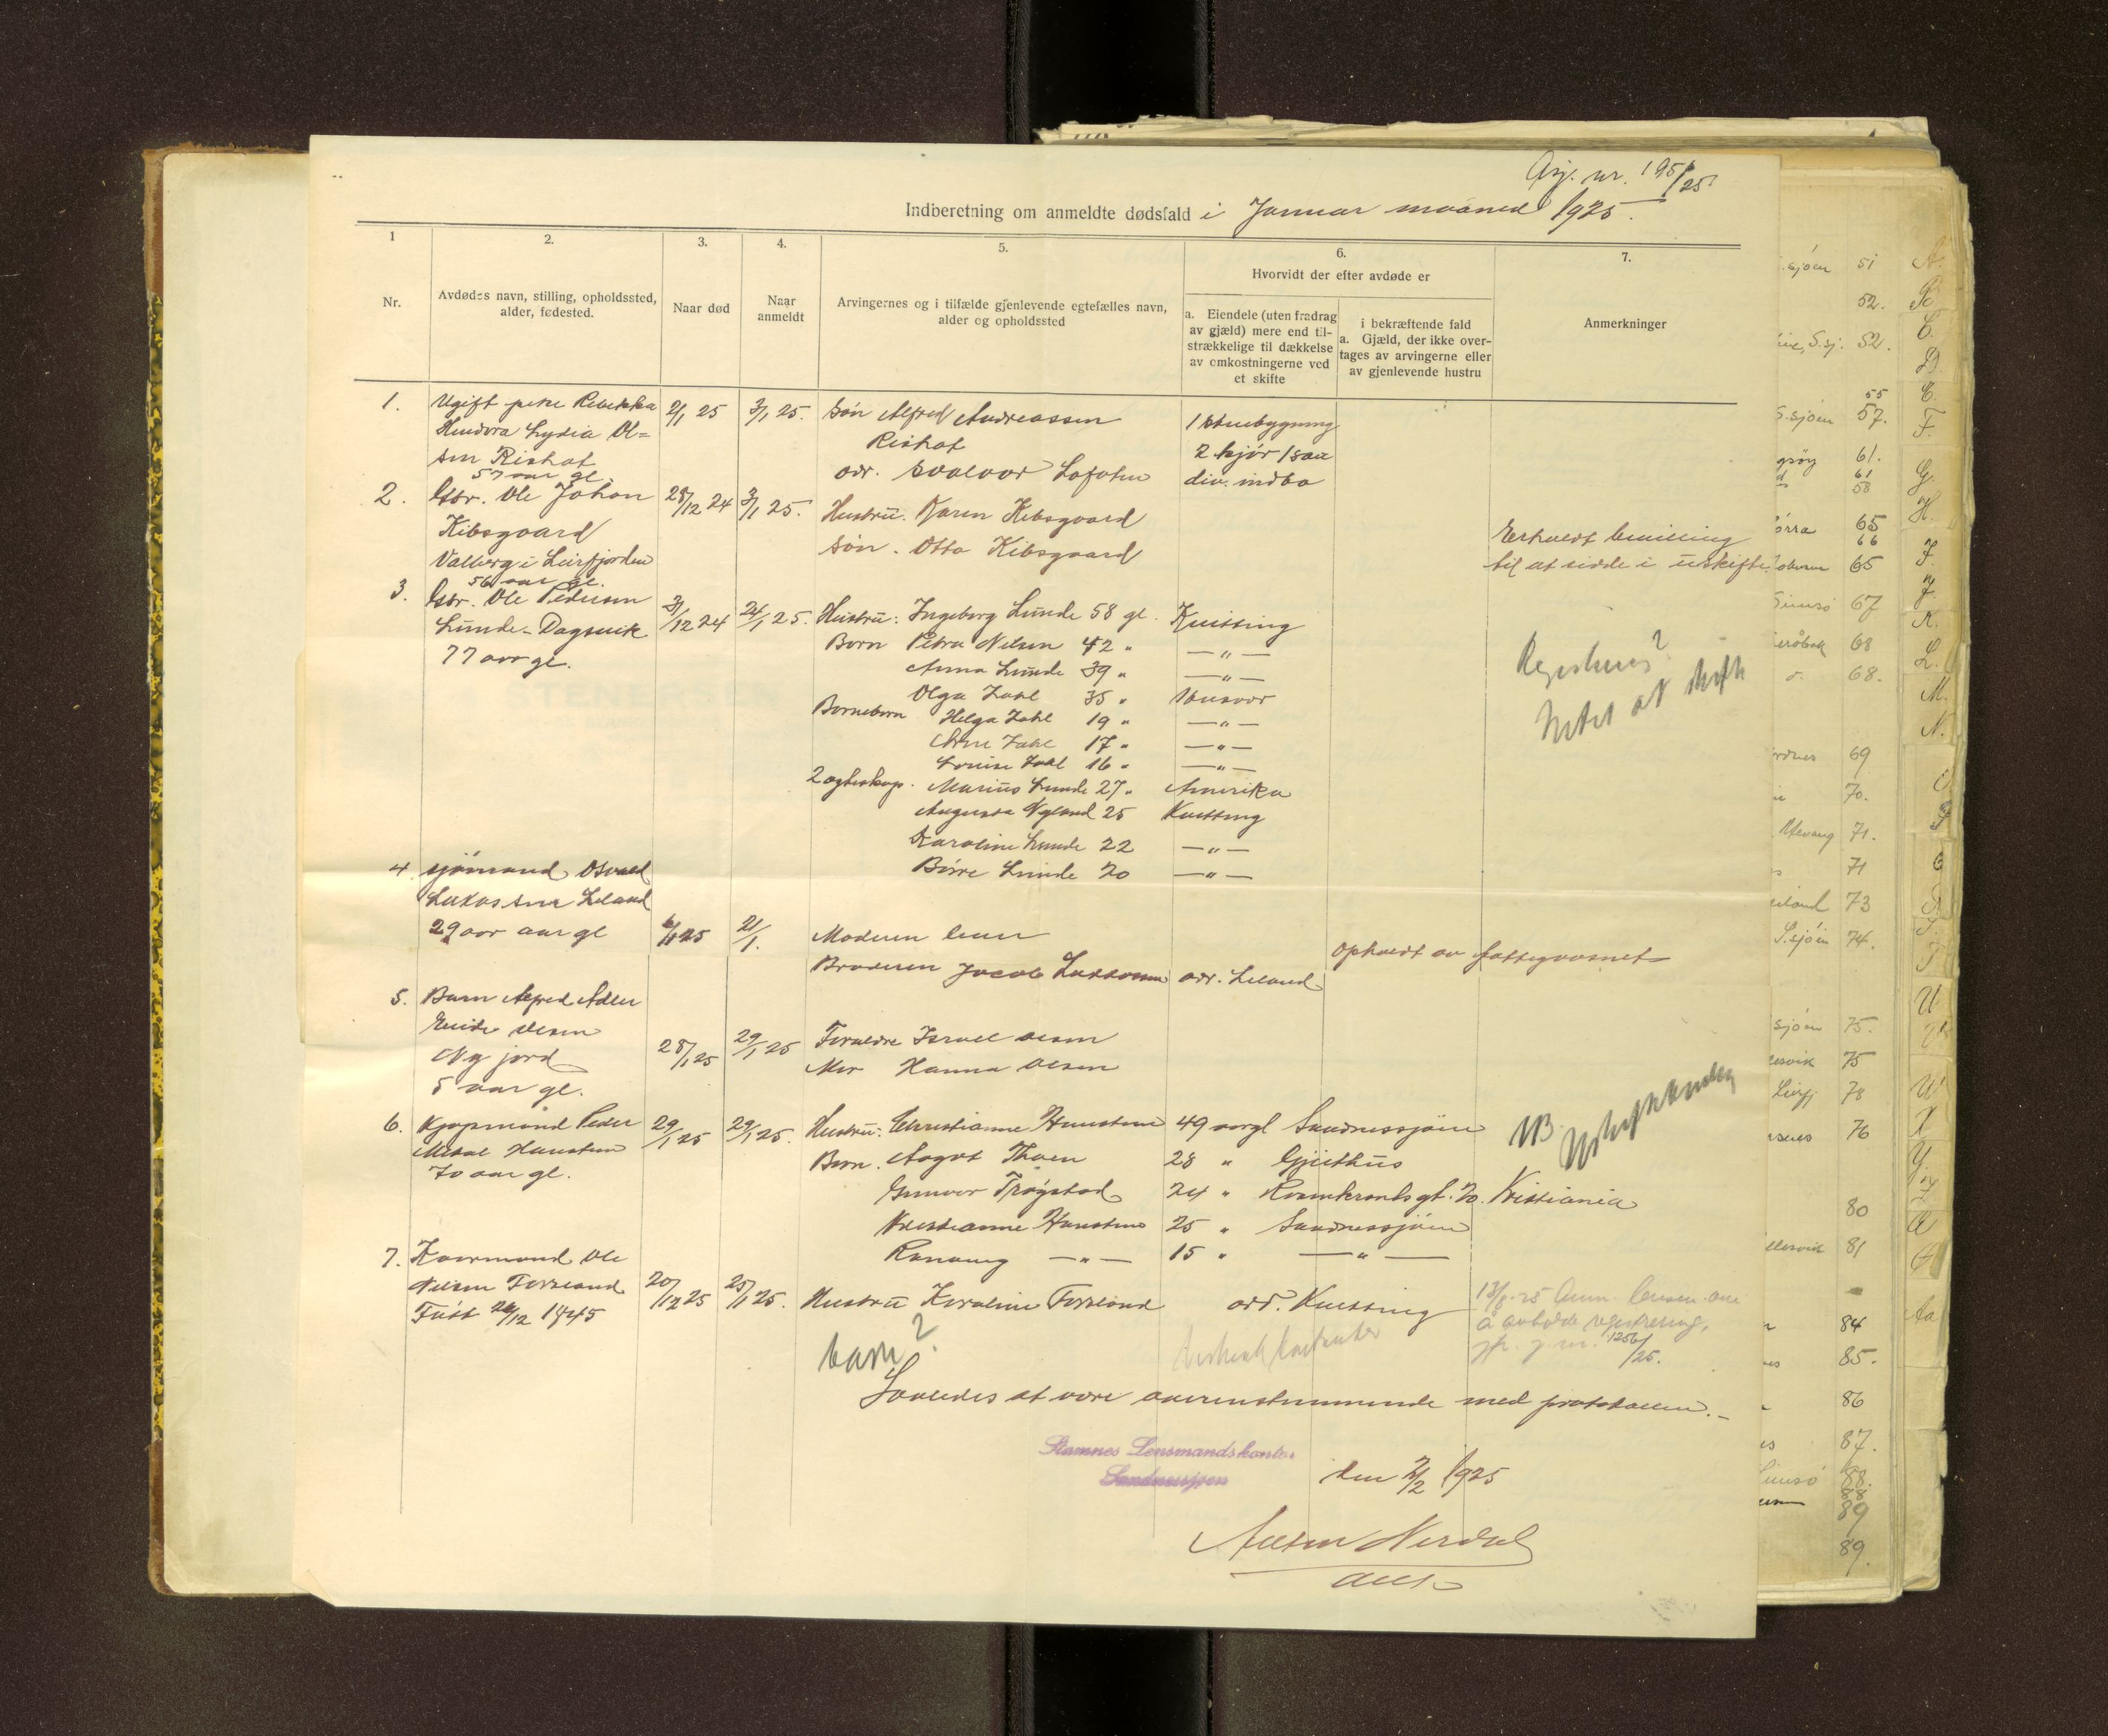 nr. 195/25
Indberetning om anmeldte dødsfald i Januar maaned 1925.
1
2.
3.
4.
5.
6.
7.
Nr.
Avdødes navn, stilling, opholdssted,
alder, fødested.
Naar død
Naar
anmeldt
Arvingernes og i tilfælde gjenlevende egtefælles navn,
alder og opholdssted
Hvorvidt der efter avdøde er
a. Eiendele (uten fradrag
av gjæld) mere end til-
strækkelige til dækkelse
av omkostningerne ved
et skifte
i bekræftende fald
a. Gjæld, der ikke over-
tages av arvingerne eller
av gjenlevende hustru
Anmerkninger
1. Ugift pike Rebekka 2/1 25 3/1 25. Søn Alfred Andreassen 1 stuebygning
Lydia Ol=
sen Rishat Rishat 2 kjør 1 sau
57 aar gl. adr. Svolvær Lofoten div. indbo
2. Gbr. Ole Johan 28/12 24 3/1 25. Hustru. Karen Kibsgaard
Kibsgaard Søn. Otto Kibsgaard
Valberg i Leirfjorden
56 aar gl.
Erholdt bevilling
til at sidde i uskifte.
3. Gbr. Ole Pedersen
Lunde - Dagsvik 31/12 24 24/1 25. Hustru: Ingeborg Lunde 58 gl. Kvitting
77 aar gl. Børn Petra Nilsen 42 " —"—
Anna Lunde 39 " —"—
Olga Zahl 35 " Husvær
Børnebørn Helga Zahl 19 " —"—
Arne Zahl 17 " —"—
Louise Zahl 16 " —"—
2 egteskap. Marius Lunde 27 " Amerika
Augusta Nyland 25 Kvitting
Karoline Lunde 22 —"—
Børre Lunde 20 —"—
Registreres?
Intet at skifte
4. sjømand Osvald
Lukassen Leland
29 aar gl 6/1 25 21/1. Moderen lever
Broderen Jacob Lukassen adr. Leland
Opholdt av fattigvæsnet
5. Barn Alfred Adler
Olsen
Nyjord 28/1 25 29/1 25 Forældre Israel Olsen
5 aar gl. Mor Hanna Olsen
6. Kjøpmand Peder 29/1 25 29/1 25. Hustru: Christianne Haustum 49 aar gl Sandnessjøen
70 aar gl. Børn. Aagot Thoen 28 "
Gunvor Trøgstad 24 " Rosenkrantsgt. 20. Kristiania
Kristianne 25 " Sandnessjøen
Ranveig —"— 15 " —"—
NB.
7. Kaarmand Ole
Nilsen Forsland 20/12 25 25/1 25. Hustru Karoline Forsland adr. Kvitting
Født 26/12 1845
barn?
å avholde registrering,
1256/25.
Saaledes at være overensstemmende med protokollen.-
Stamnes Lensmandskontor
Sandnessjøen
den 2/2 1925
Nerdal
S.sjøen 51
52.
S.sj. 52.
55
S.sjøen 57.
61.
61
58
65
66
65
67
68
68.
69
70.
71.
71
73
S.sjøen 74.
sjøen 75.
75
78
76
80
81
84
85.
86
87.
88.
88
89
89.